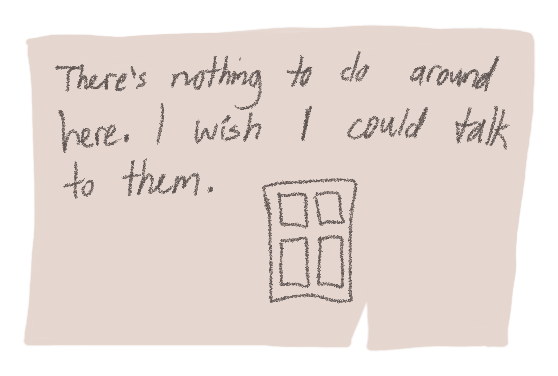 There's nothing to do around
here. I wish I could talk
to them.